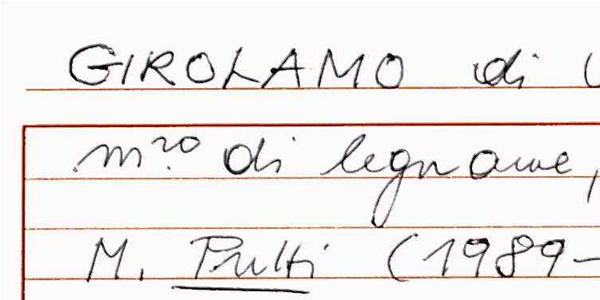 GIROLAMO di
m.ro di legname,
M. Pulti (1989-